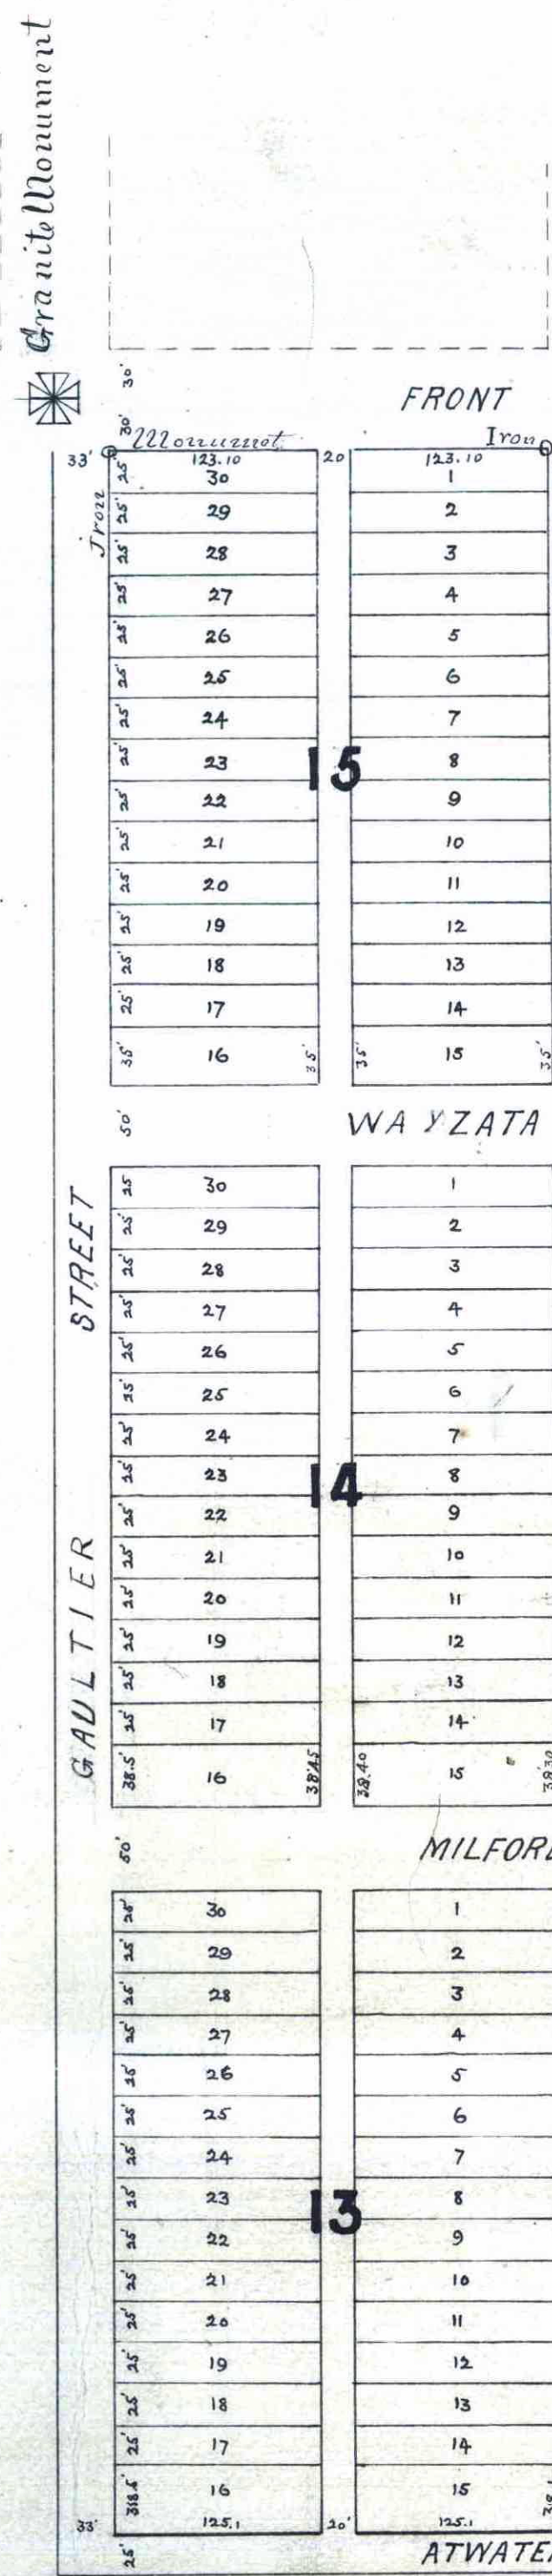 Granite Monument
30'
FRONT
30'
Monument
Iron
33'
123.10
20
123.10
Iron
25' 30 1
25' 29 2
25' 28 3
25' 27 4
25' 26 5
25' 25 6
25' 24 7
25' 23 8
15
25' 22 9
25' 21 10
25' 20 11
25' 19 12
25' 18 13
25' 17 14
35' 16 35' 35' 15 35'
50'
WAYZATA
25 30 1
25' 29 2
25' 28 3
25' 27 4
25' 26 5
25' 25 6
25' 24 7
25' 23 8
14
25' 22 9
25' 21 10
25' 20 11
25' 19 12
25' 18 13
25' 17 14
38.5' 16 38.45 38.40 15 38.30
GAULTIER STREET
50'
MILFORD
25' 30 1
25' 29 2
25' 28 3
25' 27 4
25' 26 5
25' 25 6
25' 24 7
25' 23 8
13
25' 22 9
25' 21 10
25' 20 11
25' 19 12
25' 18 13
25' 17 14
16 15
33' 125.1 20' 125.1
25'
ATWATE